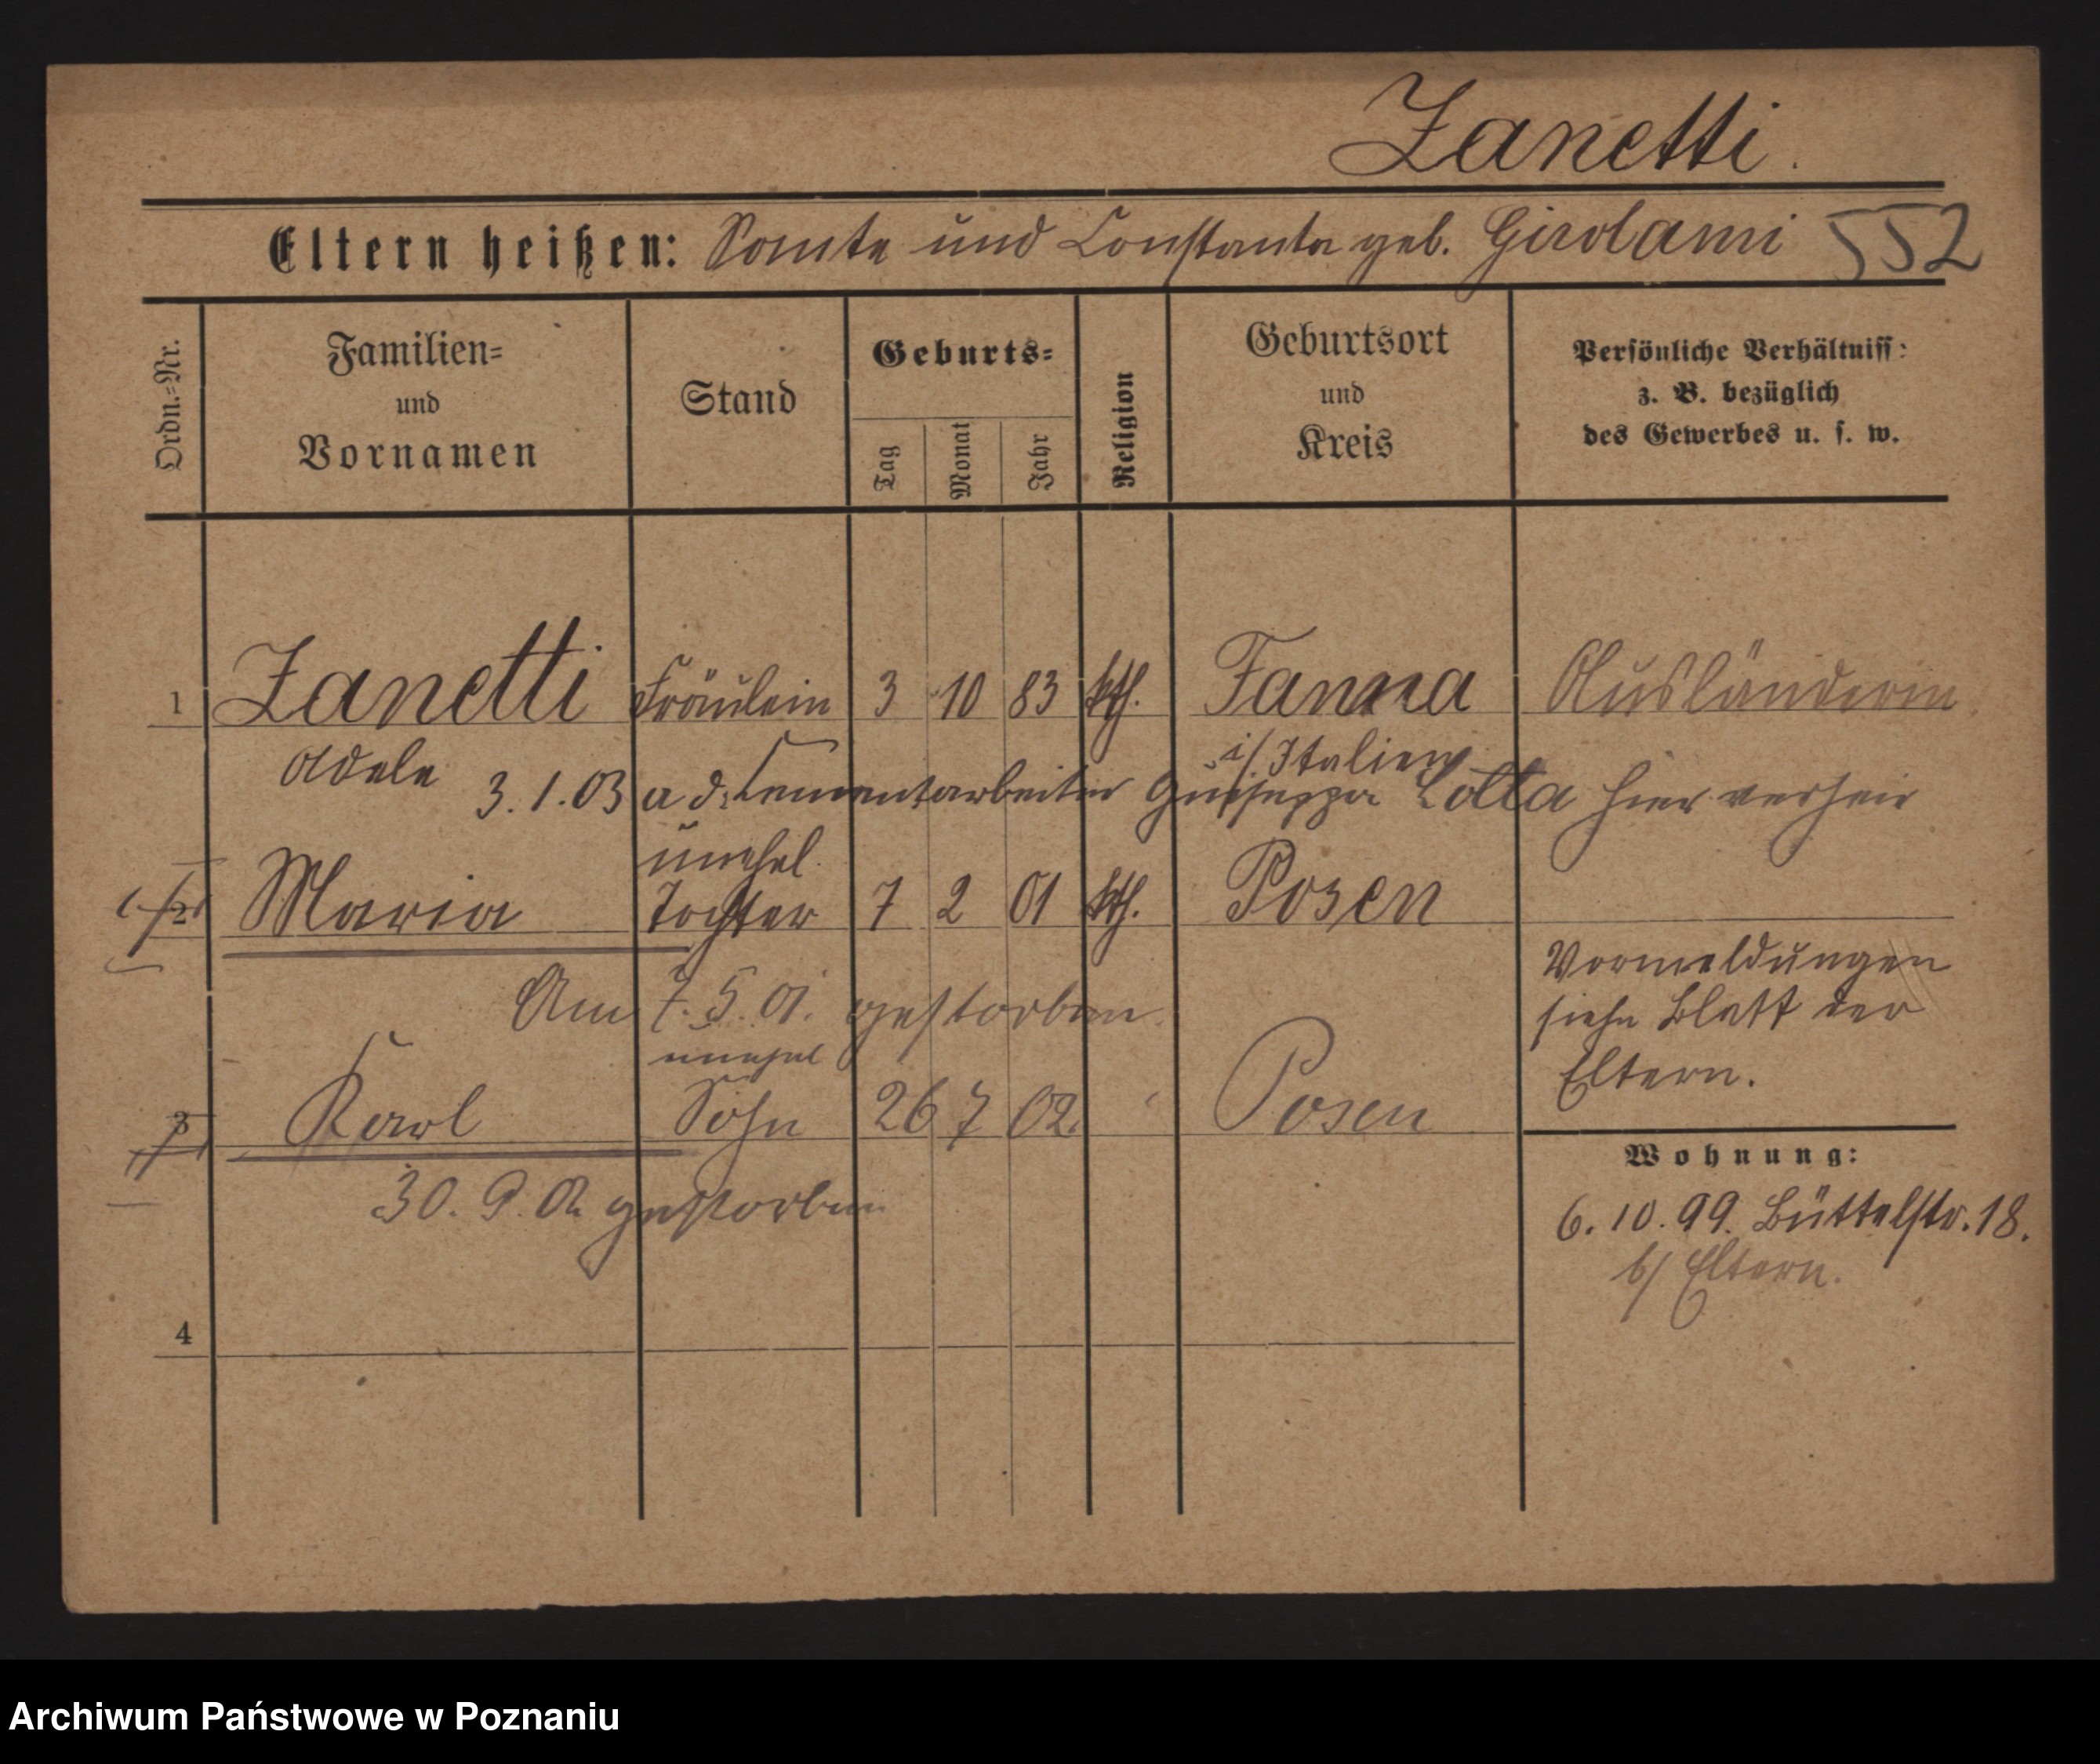 Zanetti.
Eltern heißen: Sante und Constanta geb. Girolami 552
Ordn.=Nr.
Familien=
und
Vornamen
Stand
Geburts=
Tag
Monat
Jahr
Religion
Geburtsort
und
Kreis
Persönliche Verhältniss:
z. B. bezüglich
des Gewerbes u. s. w.
1 Zanetti Fräulein 3 10 83 kth. Fanna Ausländerin
Adele
i/ Italien
3.1.03 a d. Cementarbeiter Giuseppe Lotta hier verheir
unehel.
2 Maria Tochter 7 2 01 kth. Posen
Am 7.5.01. gestorben
Vormeldungen
siehe Blatt der
Eltern.
unehel
3 Karl Sohn 26 7 02. Posen
30. 9. 02 gestorben
Wohnung:
6.10.99. Büttelstr. 18.
b/ Eltern.
4
Archiwum Państwowe w Poznaniu